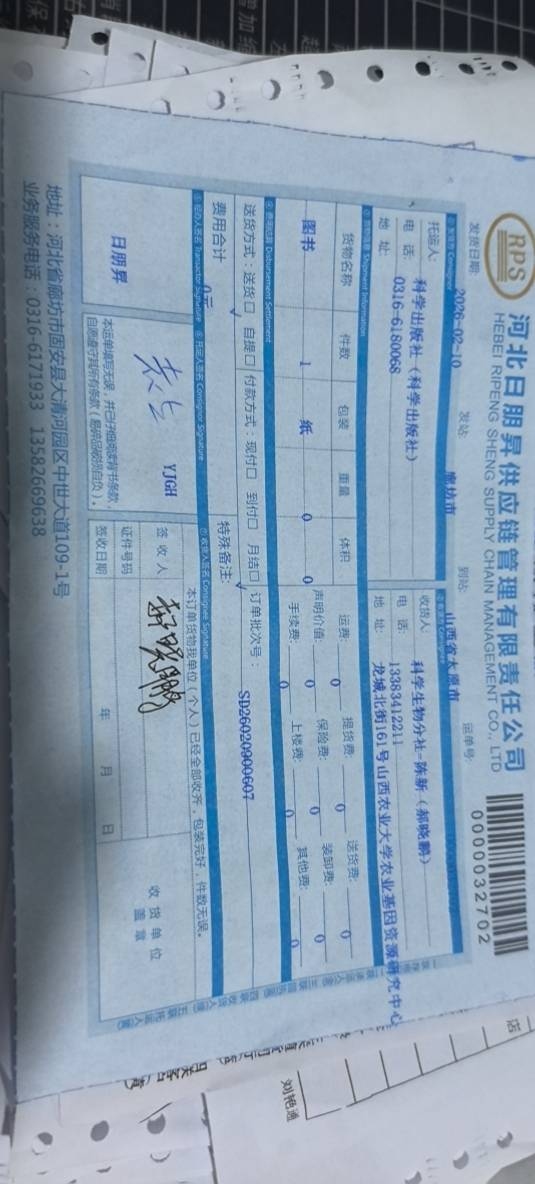 RPS
河北日朋昇供应链管理有限责任公司
HEBEI RIPENG SHENG SUPPLY CHAIN MANAGEMENT CO., LTD
0000032702
发货日期: 2026-02-10 发站: 廊坊市 到站: 山西省太原市 运单号:
托运人: 科学出版社（科学出版社）
电 话: 0316-6180068
地 址:
收货人: 科学生物分社-陈新（郝晓鹏）
电 话: 13383412211
地 址: 龙城北街161号山西农业大学农业基因资源研究中心
Shipment Information
货物名称 件数 包装 重量 体积
图书 1 纸 0 0
运费: 0 提货费: 0 送货费: 0
声明价值: 0 保险费: 0 装卸费: 0
手续费: 0 上楼费: 0 其他费: 0
Disbursement Settlement
送货方式: 送货☐ 自提☐ 付款方式: 现付☐ 到付☐ 月结☐ 订单批次号: SD26020900607
费用合计 0元 特殊备注:
经办人签名 Transactor Signature 托运人签名 Consignor Signature 收货人签名 Consignee Signature
日朋昇
YJGH
本运单填写无误，并已仔细阅读背书条款，
自愿遵守其所有条款（易碎品破损自负）。
本订单货物我单位（个人）已经全部收齐，包装完好，件数无误。
签 收 人 郝晓鹏
证件号码
签收日期 年 月 日
收 货 单 位
盖 章
地址：河北省廊坊市固安县大清河园区中世大道109-1号
业务服务电话：0316-6171933 13582669638
店
刘艳通